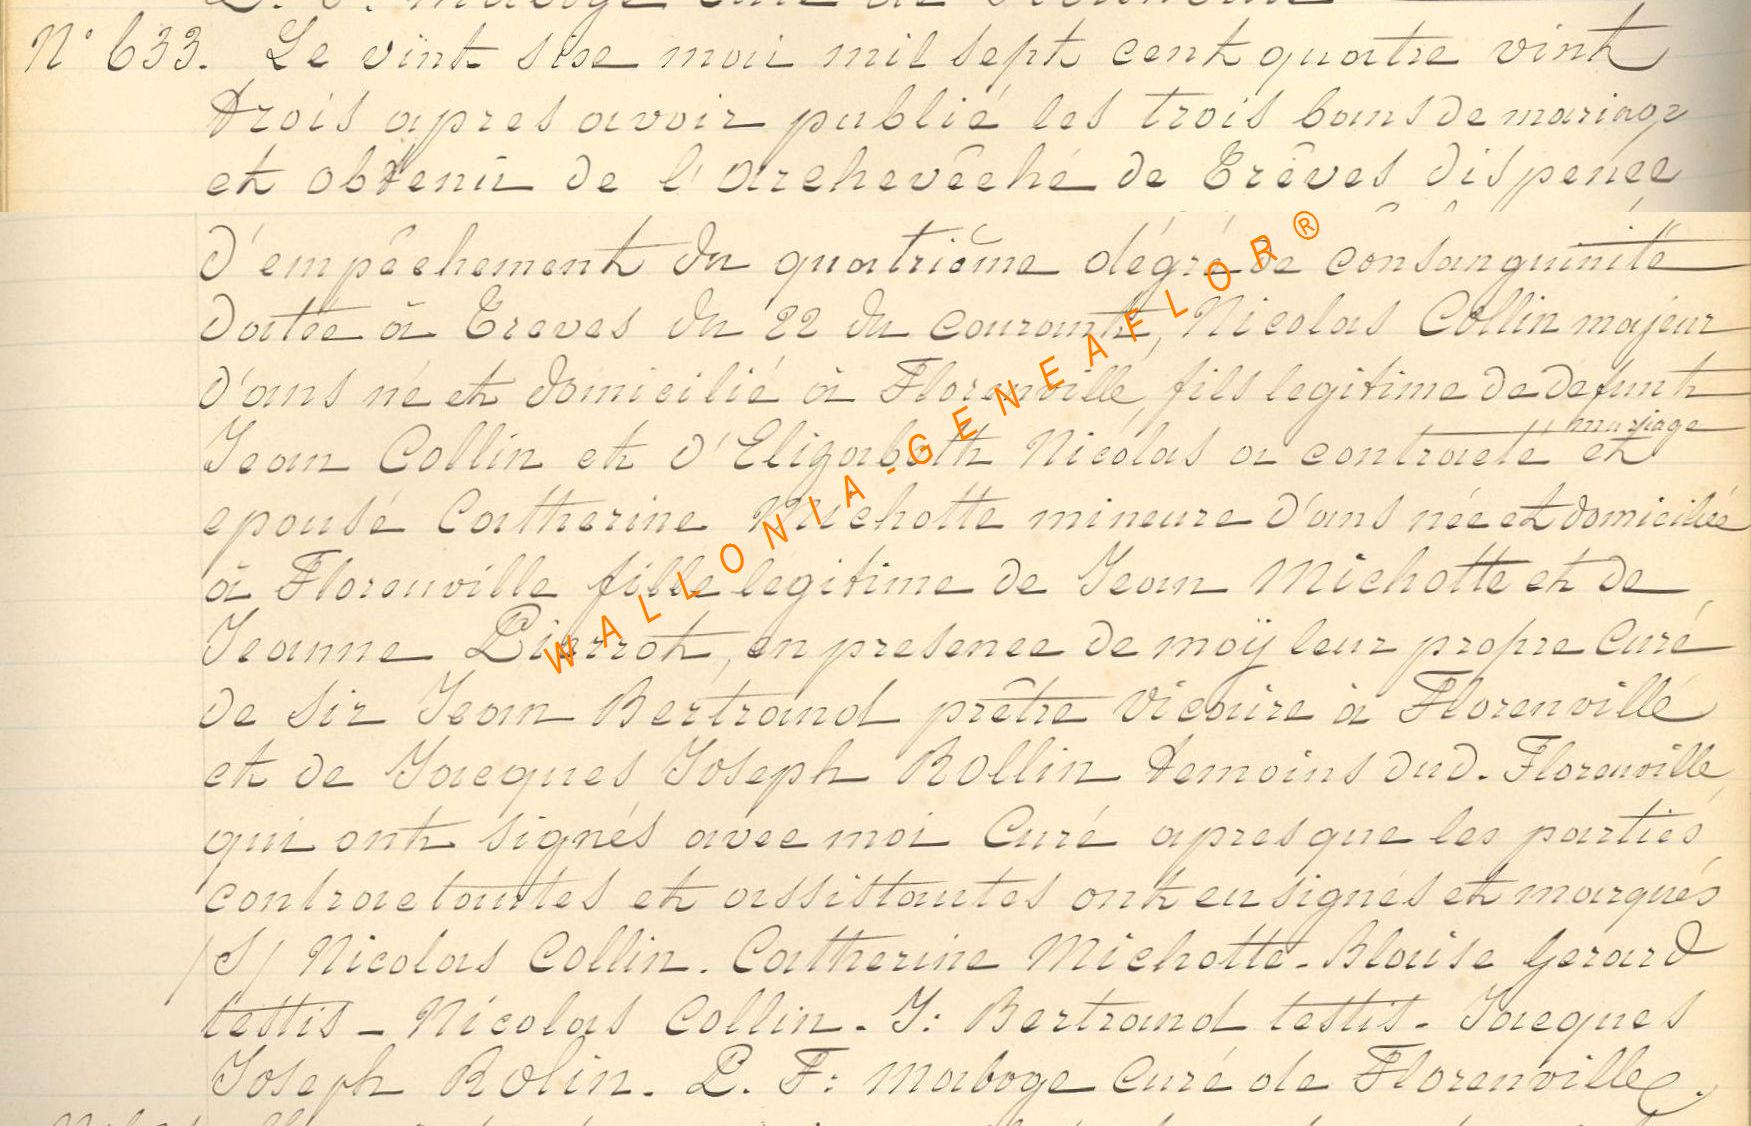 N° 633. Le vint sixe mai mil sept cent quatre vint
trois apres avoir publié les trois bans de mariage
et obtenir de l'archevêché de Trêves dispence
d'empêchement du quatriême dégré de consanguinité
datée à Treves du 22 du courant, Nicolas Collin majeur
d'ans né et domicilié à Florenville, fils legitime de defunt
Jean Collin et d'Elizabeth Nicolas a contracté mariage et
epousé Catherine Michotte mineure d'ans née et domiciliée
à Florenville fille legitime de Jean Michotte et de
Jeanne Pierrot, en presence de moÿ leur propre Curé
de Sir Jean Bertrand prêtre Vicaire à Florenville
et de Jacques Joseph Rollin temoins dud. Florenville,
qui ont signés avec moi Curé apres que les parties
contractantes et assistantes ont eu signés et marqués
/S/ Nicolas Collin. Catherine Michotte - Blaise Gerard
testis - Nicolas Collin. J: Bertrand testis. Jacques
Joseph Rolin. L. F: Maboge Curé de Florenville.
WALLONIA-GENEAFLOR®